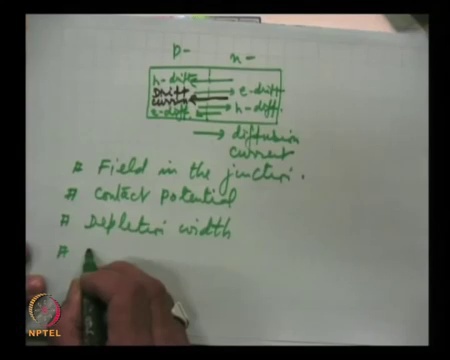 p- n-
h-drift
Drift e-drift
curren h-diff.
e-diff
diffusion
current
# Field in the junction.
# Contact Potential
# Depletion width
#
NPTEL